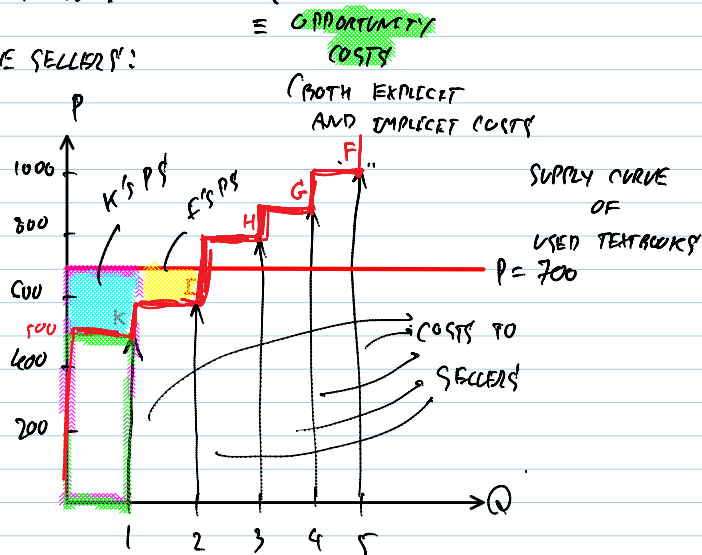 ≡ OPPORTUNITY
COSTS
E SELLERS:
(BOTH EXPLICIT
AND IMPLICIT COSTS
P
1000
800
600
500
400
200
K's PS
E's PS
F
G
H
E
K
SUPPLY CURVE
OF
USED TEXTBOOKS
P = 700
COSTS TO
SELLERS
Q
1 2 3 4 5